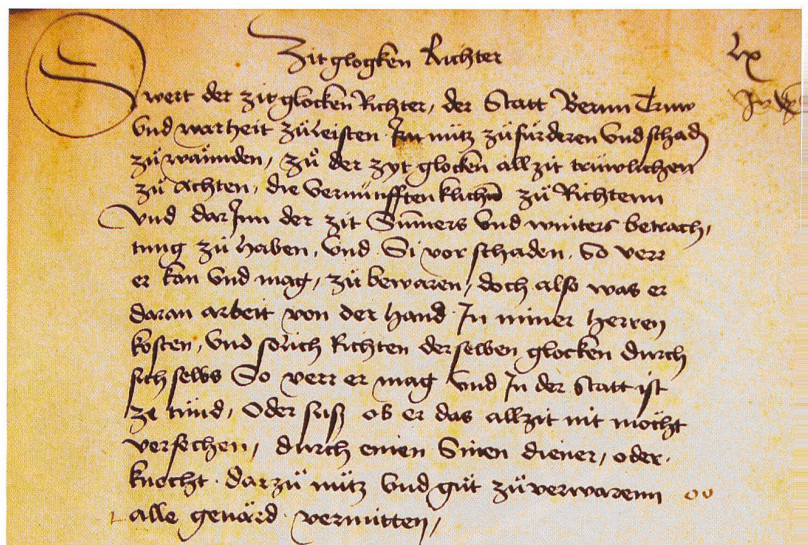 Zitglogken Richter
lx
Swert der zitglocken Richter, der Statt Bernn Truw
Und warheit zů leisten Irn nütz zů fürderen und schad
zů waͤnnden, zů der zyt glocken allzit trüwlichen
zů achten, die vernünfftenklichen zů Richtenn
Und darInn der zit Summers und winters betrach,
tung zů haben, Und Si vor schaden, So verr
er kan und mag, zů bewaren, doch also was er
daran arbeit von der hand In miner herren
kosten, und sölich Richten derselben glocken durch
sich selbs So verr er mag und In der Statt ist
ze tůnd, Oder suß ob er das allzit nit möcht
versechen, durch einen Sinen diener, oder
knecht darzů nütz und gůt zů verwarenn
alle gevärd vermitten,